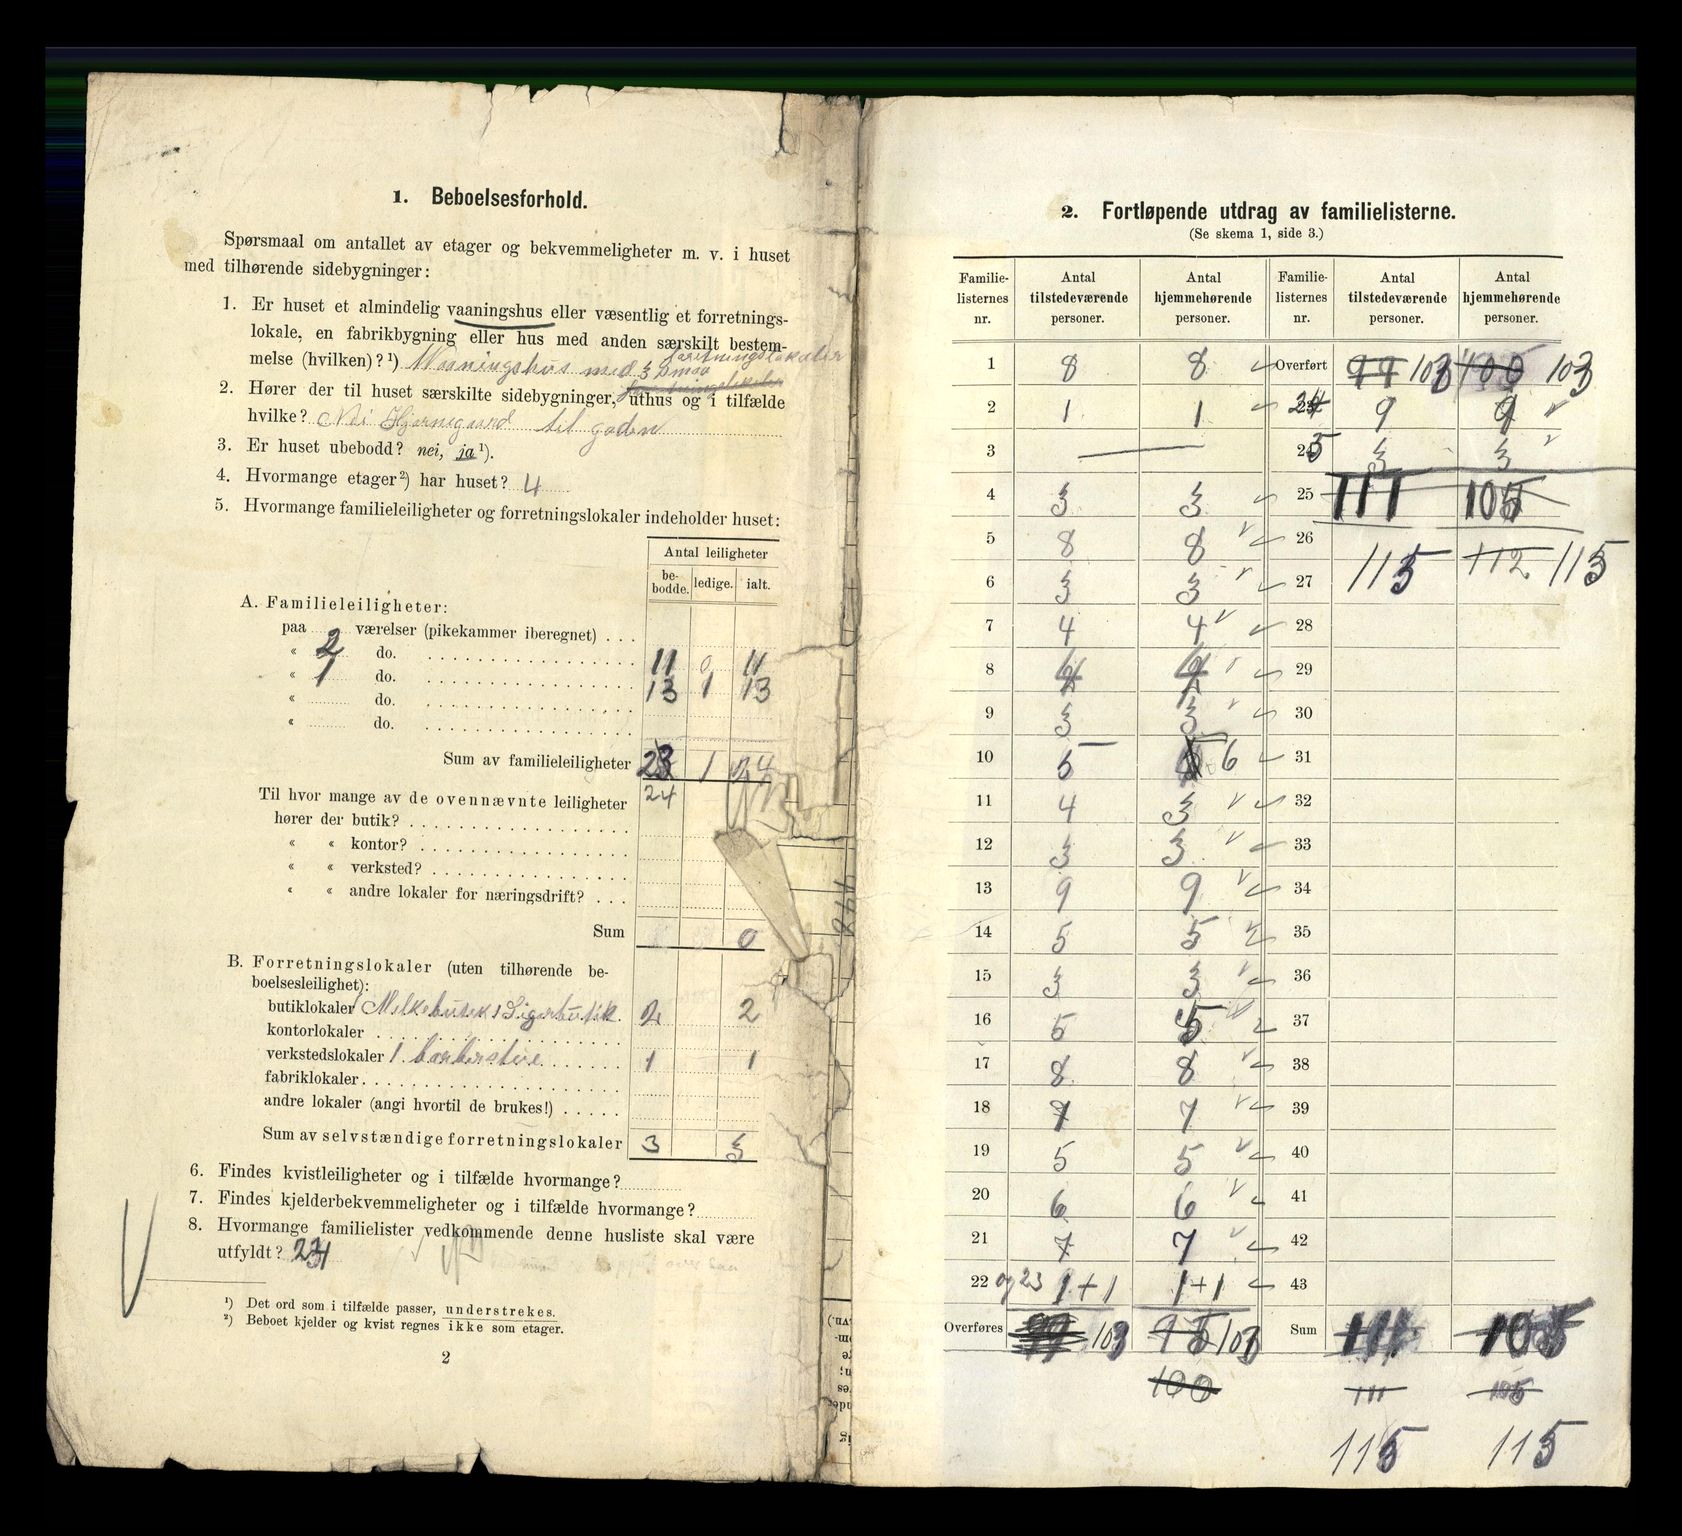 1. Beboelsesforhold.
Spørsmaal om antallet av etager og bekvemmeligheter m. v. i huset
med tilhørende sidebygninger:
1. Er huset et almindelig vaaningshus eller væsentlig et forretnings-
lokale, en fabrikbygning eller hus med anden særskilt bestem-
melse (hvilken)? ¹) Vaaningshus med 3 smaa forretningslokaler
2. Hører der til huset særskilte sidebygninger, uthus og i tilfælde
hvilke? Nei Hjørnegaard til gaden
3. Er huset ubebodd? nei, ja ¹).
4. Hvormange etager ²) har huset? 4
5. Hvormange familieleiligheter og forretningslokaler indeholder huset:
Antal leiligheter
be-
bodde. ledige. ialt.
A. Familieleiligheter:
paa værelser (pikekammer iberegnet) . . .
« 2 do. 11 0 11
« 1 do. 13 1 13
« do.
« do.
Sum av familieleiligheter 23 1 24
Til hvor mange av de ovennævnte leiligheter 24
hører der butik?
« « kontor?
« « verksted?
« « andre lokaler for næringsdrift? . . .
Sum 0
B. Forretningslokaler (uten tilhørende be-
boelsesleilighet):
butiklokaler 1 Melkebutik 1 Sigarbutik. 2 2
kontorlokaler
verkstedslokaler 1 barberstue 1 1
fabriklokaler
andre lokaler (angi hvortil de brukes!)
Sum av selvstændige forretningslokaler 3 3
6. Findes kvistleiligheter og i tilfælde hvormange?
7. Findes kjelderbekvemmeligheter og i tilfælde hvormange?
8. Hvormange familielister vedkommende denne husliste skal være
utfyldt? 24
¹) Det ord som i tilfælde passer, understrekes.
²) Beboet kjelder og kvist regnes ikke som etager.
2
448
2. Fortløpende utdrag av familielisterne.
(Se skema 1, side 3.)
Familie-
listernes
nr. Antal
tilstedeværende
personer. Antal
hjemmehørende
personer. Familie-
listernes
nr. Antal
tilstedeværende
personer. Antal
hjemmehørende
personer.
1 8 8 Overført 99 103 100 103
2 1 1 24 9 9
3 — 25 3 3
4 3 3 25 111 105
5 8 8 26
6 3 3 27 115 112 115
7 4 4 28
8 4 4 29
9 3 3 30
10 5 6 31
11 4 3 32
12 3 3 33
13 9 9 34
14 5 5 35
15 3 3 36
16 5 5 37
17 8 8 38
18 7 7 39
19 5 5 40
20 6 6 41
21 7 7 42
22 og 23 1+1 1+1 43
Overføres 99 103 95 103 Sum 111 105
100 111 105
115 115